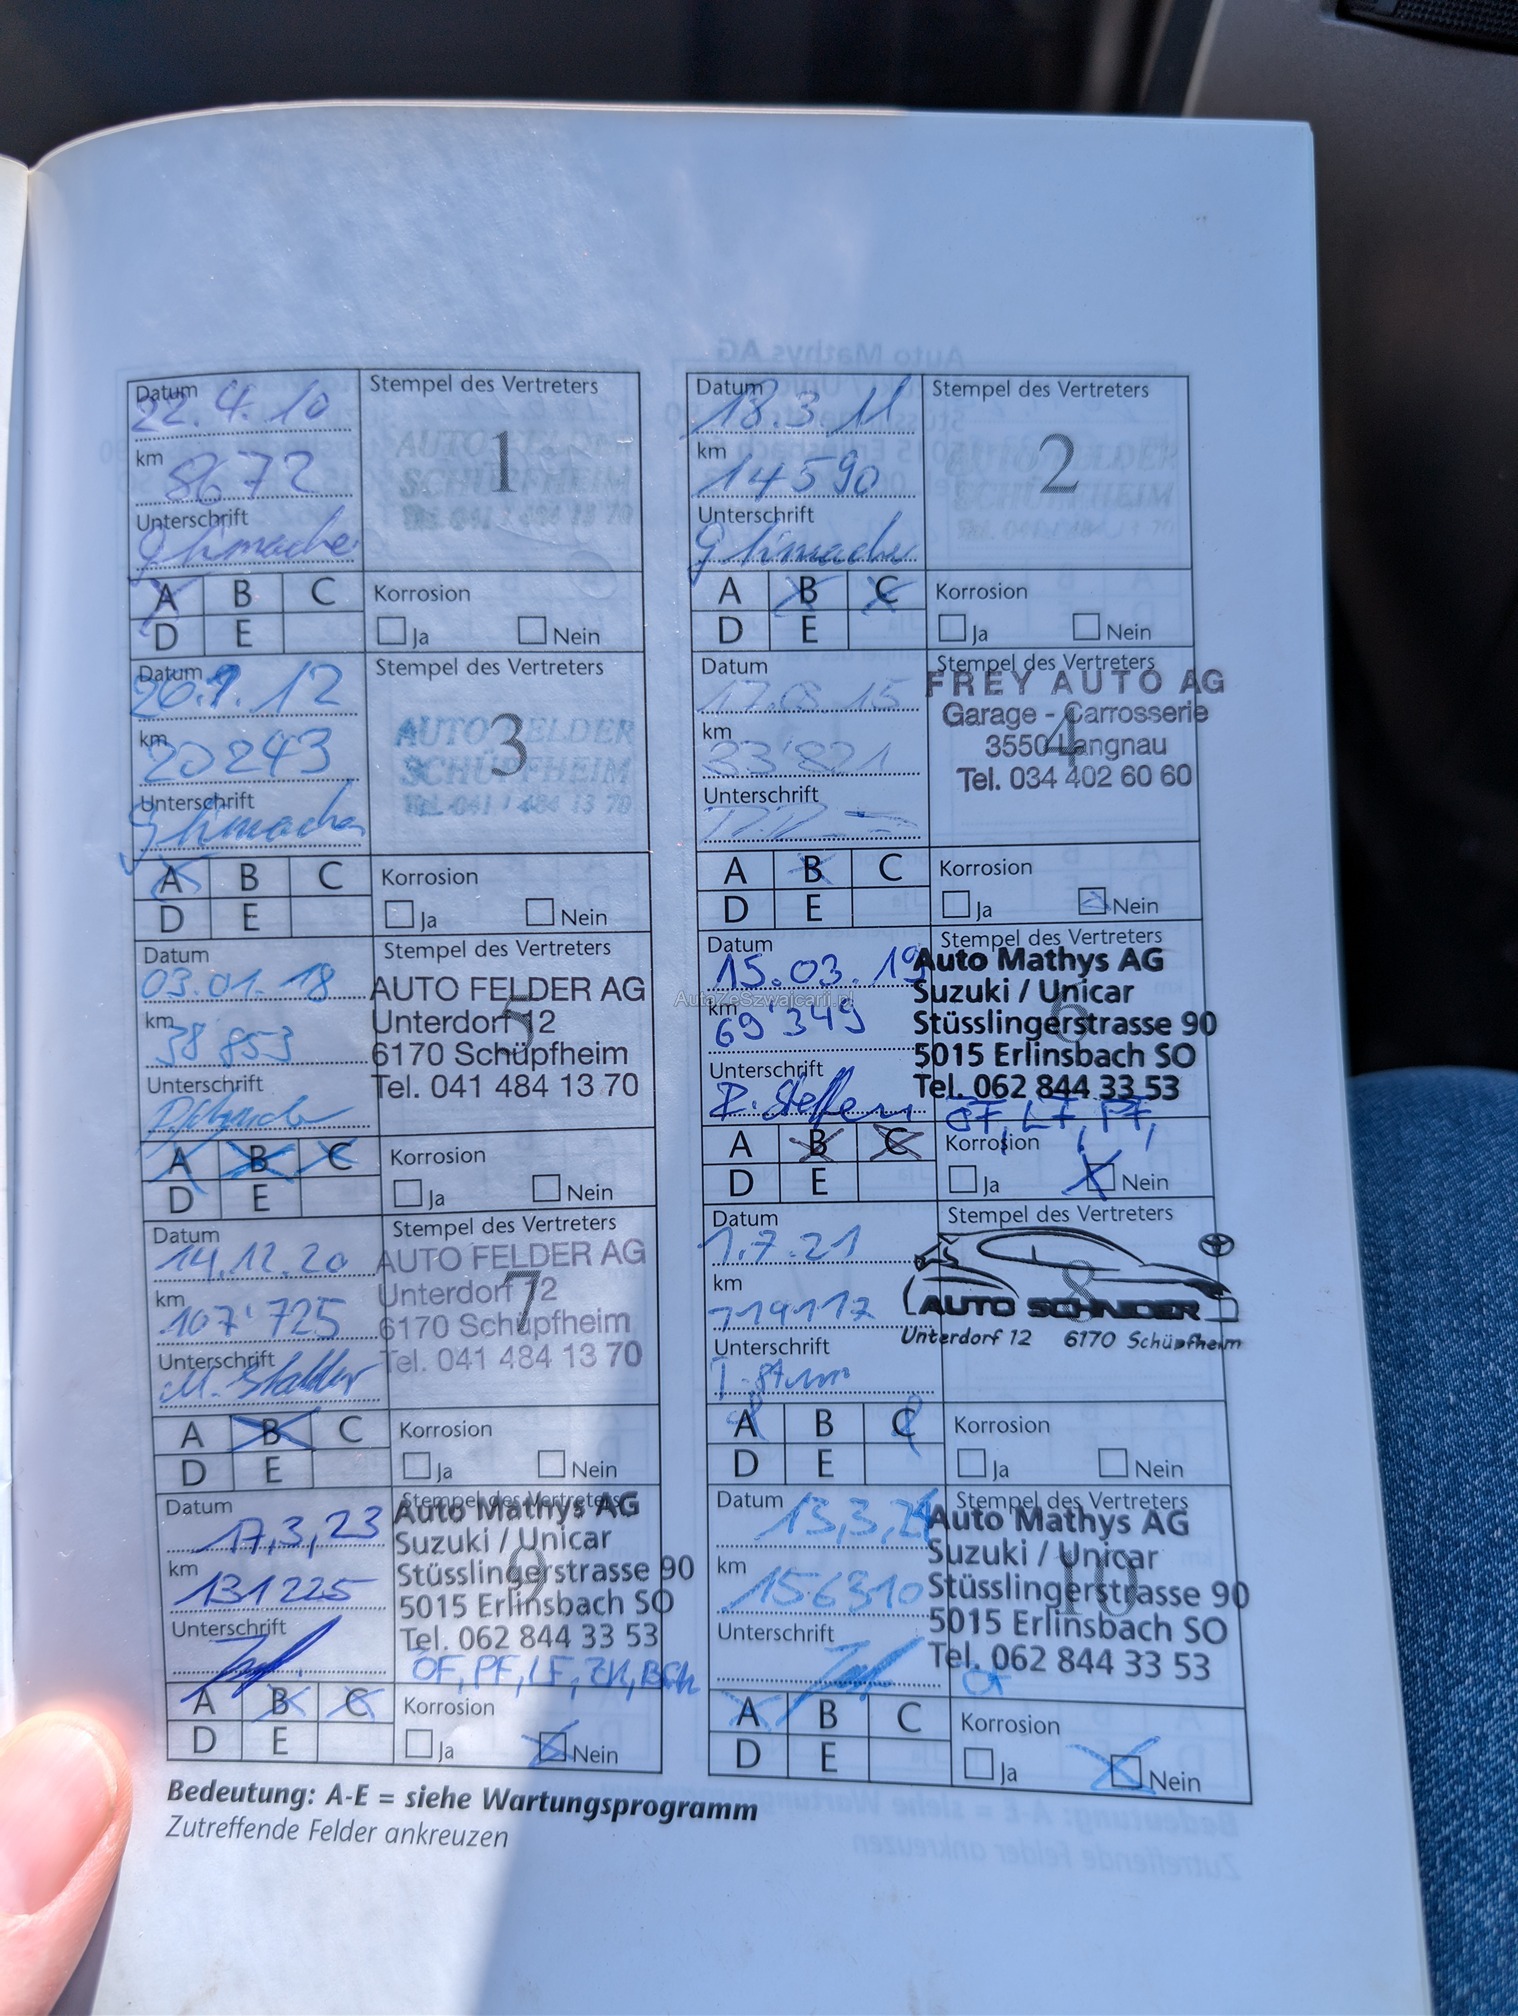 Datum 22.4.10
Stempel des Vertreters
km 8672
1
AUTO FELDER
SCHÜPFHEIM
Tel. 041 / 484 13 70
Unterschrift
A B C
D E
Korrosion
Ja Nein
Datum 18.3.11
Stempel des Vertreters
km 14590
2
AUTO FELDER
SCHÜPFHEIM
Tel. 041 / 484 13 70
Unterschrift
A B C
D E
Korrosion
Ja Nein
Datum
Stempel des Vertreters
km 20243
3
AUTO FELDER
SCHÜPFHEIM
Tel. 041 / 484 13 70
Unterschrift
A B C
D E
Korrosion
Ja Nein
Datum 17.08.15
Stempel des Vertreters
4
FREY AUTO AG
Garage - Carrosserie
3550 Langnau
Tel. 034 402 60 60
km 33'821
Unterschrift
A B C
D E
Korrosion
Ja Nein
Datum 03.01.18
Stempel des Vertreters
5
AUTO FELDER AG
Unterdorf 12
6170 Schüpfheim
Tel. 041 484 13 70
km 38'853
Unterschrift
A B C
D E
Korrosion
Ja Nein
Datum 15.03.19
Stempel des Vertreters
6
Auto Mathys AG
Suzuki / Unicar
Stüsslingerstrasse 90
5015 Erlinsbach SO
Tel. 062 844 33 53
km 69'349
Unterschrift R. Steffen
ÖF, LF, PF,
A B C
D E
Korrosion
Ja Nein
Datum 14.12.20
Stempel des Vertreters
7
AUTO FELDER AG
Unterdorf 12
6170 Schüpfheim
Tel. 041 484 13 70
km 107'725
Unterschrift M. Stalder
A B C
D E
Korrosion
Ja Nein
Datum 1.7.21
Stempel des Vertreters
8
AUTO SCHNIDER
Unterdorf 12 6170 Schüpfheim
km 119117
Unterschrift
A B C
D E
Korrosion
Ja Nein
Datum 17,3,23
Stempel des Vertreters
9
Auto Mathys AG
Suzuki / Unicar
Stüsslingerstrasse 90
5015 Erlinsbach SO
Tel. 062 844 33 53
km 131225
Unterschrift
ÖF, PF, LF, ZK,
A B C
D E
Korrosion
Ja Nein
Datum 13,3,24
Stempel des Vertreters
10
Auto Mathys AG
Suzuki / Unicar
Stüsslingerstrasse 90
5015 Erlinsbach SO
Tel. 062 844 33 53
km 156310
Unterschrift
ÖF
A B C
D E
Korrosion
Ja Nein
Bedeutung: A-E = siehe Wartungsprogramm
Zutreffende Felder ankreuzen
AutaZeSzwajcarii.pl